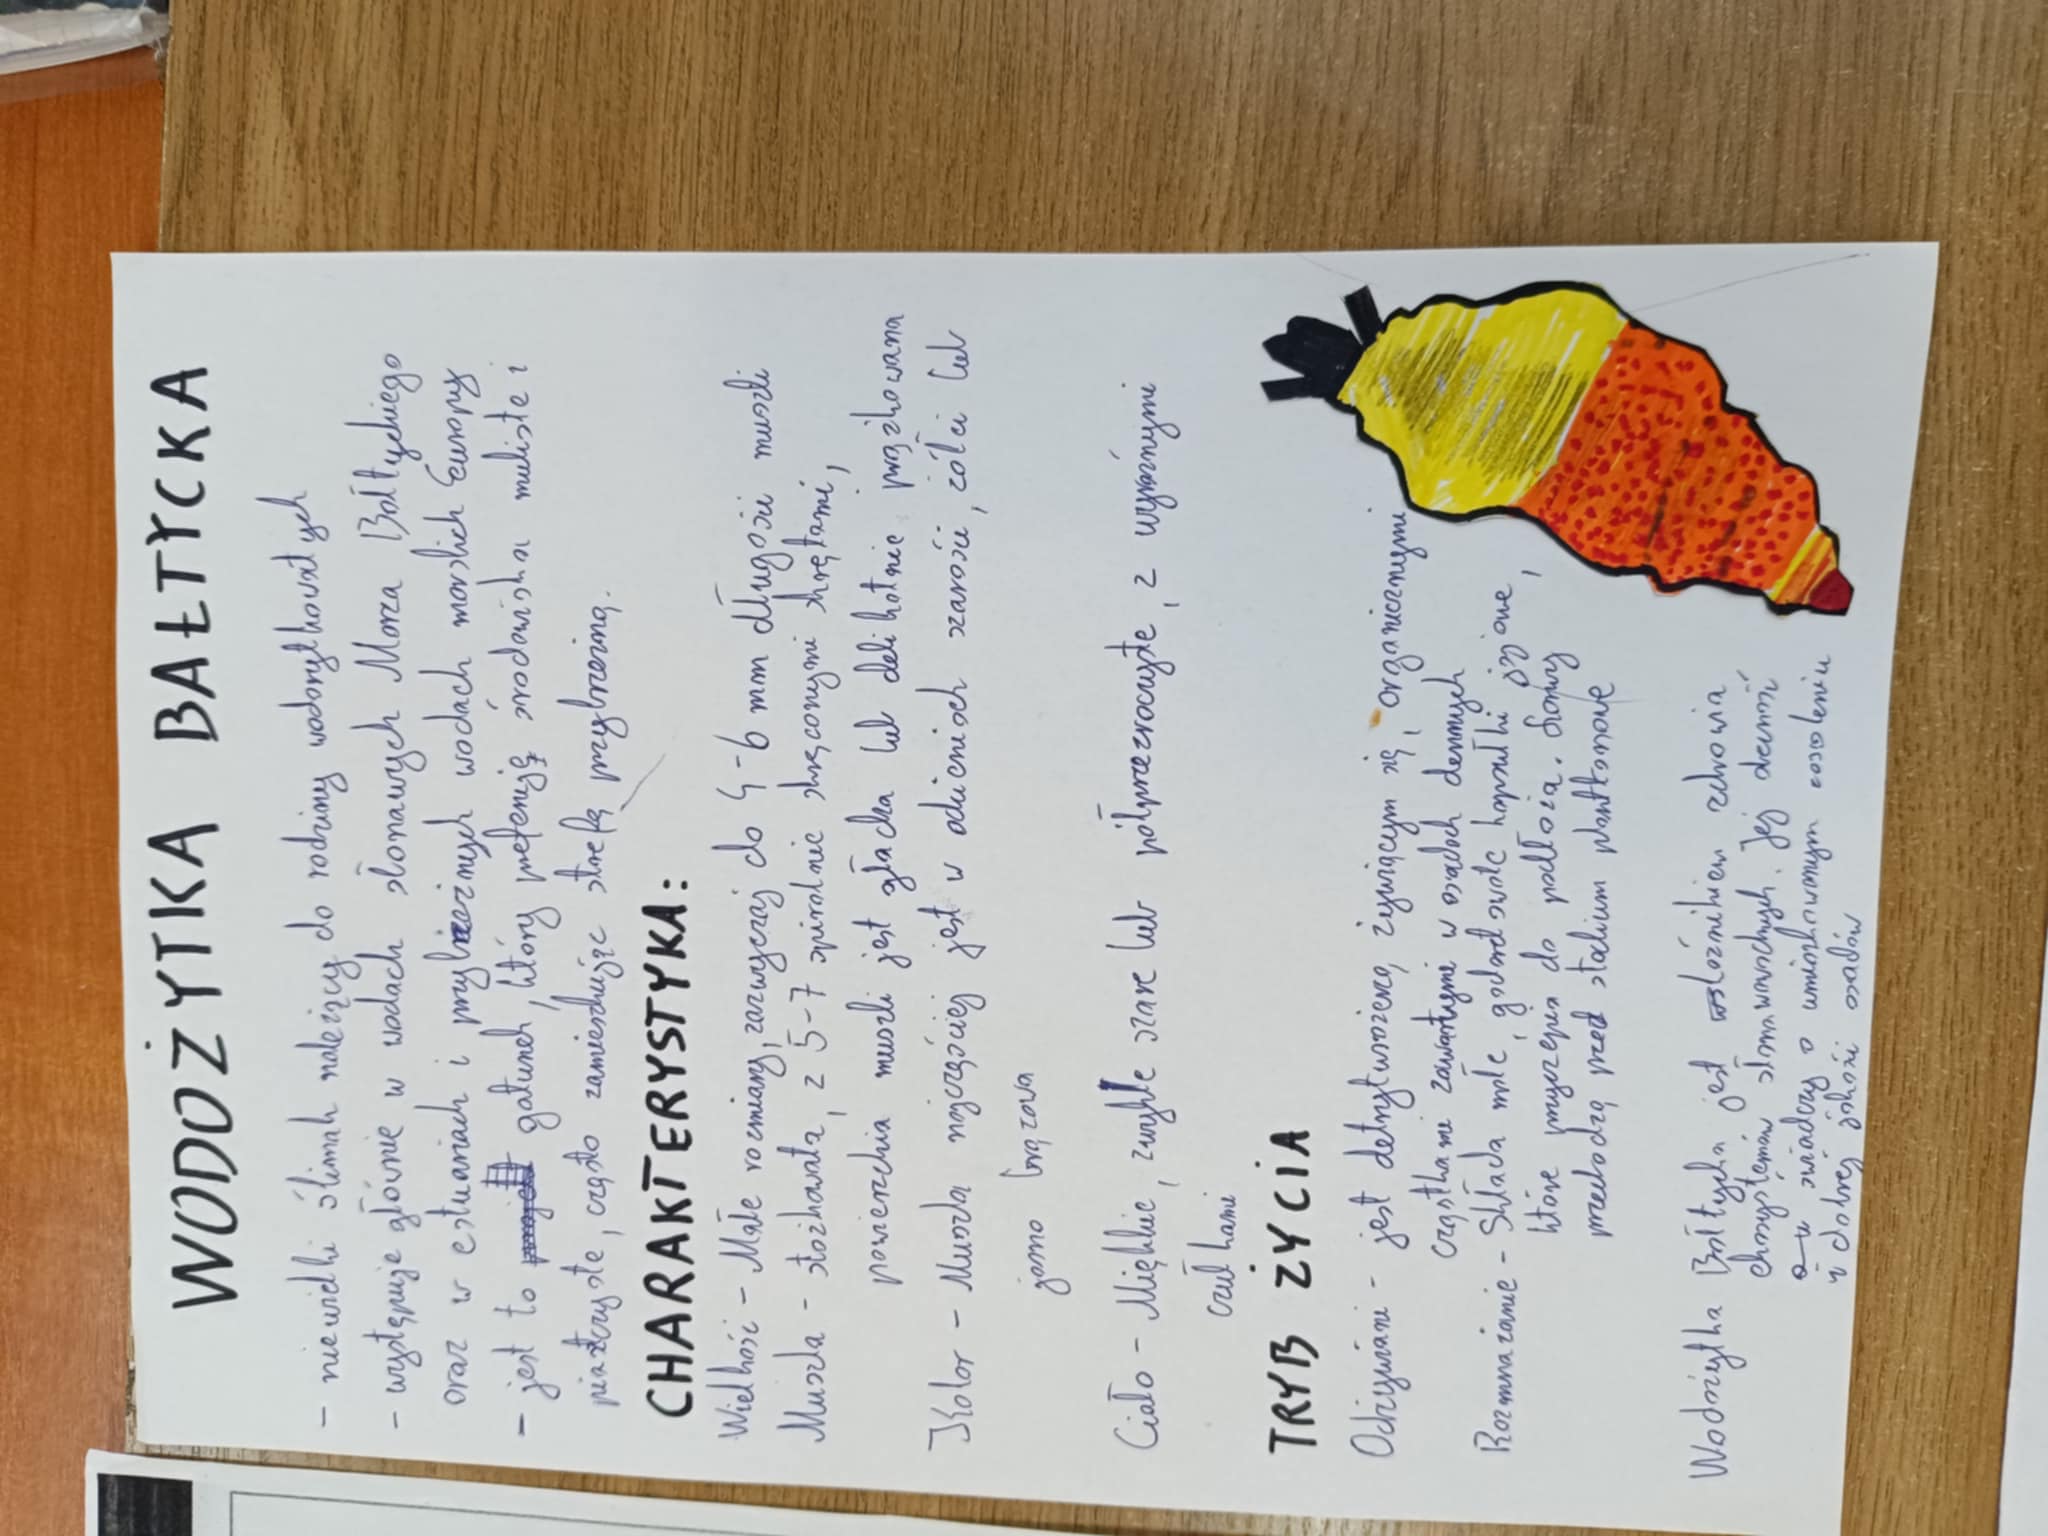 WODOŻYTKA BAŁTYCKA
- niewielki ślimak należący do rodziny wodorytkowatych
- występuje głównie w wodach słonawych Morza Bałtyckiego
oraz w estuariach i przybrzeżnych wodach morskich Europy
- jest to gatunek, który preferuję środowiska muliste i
piaszczyste, często zamieszkując strefą przybrzeżną.
CHARAKTERYSTYKA:
Wielkość - Małe rozmiary, zazwyczaj do 4-6 mm długości muszli
Muszla - stożkowata, z 5-7 spiralnie skręconymi skrętami,
powierzchnia muszli jest gładka lub delikatnie prążkowana
Kolor - Muszla najczęściej jest w odcieniach szarości, żółci lub
jasno brązowa
Ciało - Miękkie, zwykle szare lub półprzezroczyste, z wyraźnymi
czułkami
TRYB ŻYCIA
Odżywianie - jest detrytusożercą, żywiącym się, organicznymi
cząstkami zawartymi w osadach dennych
Rozmnażanie - Składa małe, galaretowate kapsułki jajowe,
które przyczepia do podłoża.
przechodzą przed stadium planktonowe
Wodożytka Bałtycka jest wskaźnikiem zdrowia
ekosystemów słonawowodnych. Jej obecność
świadczy o umiarkowanym zasoleniu
i dobrej jakości osadów